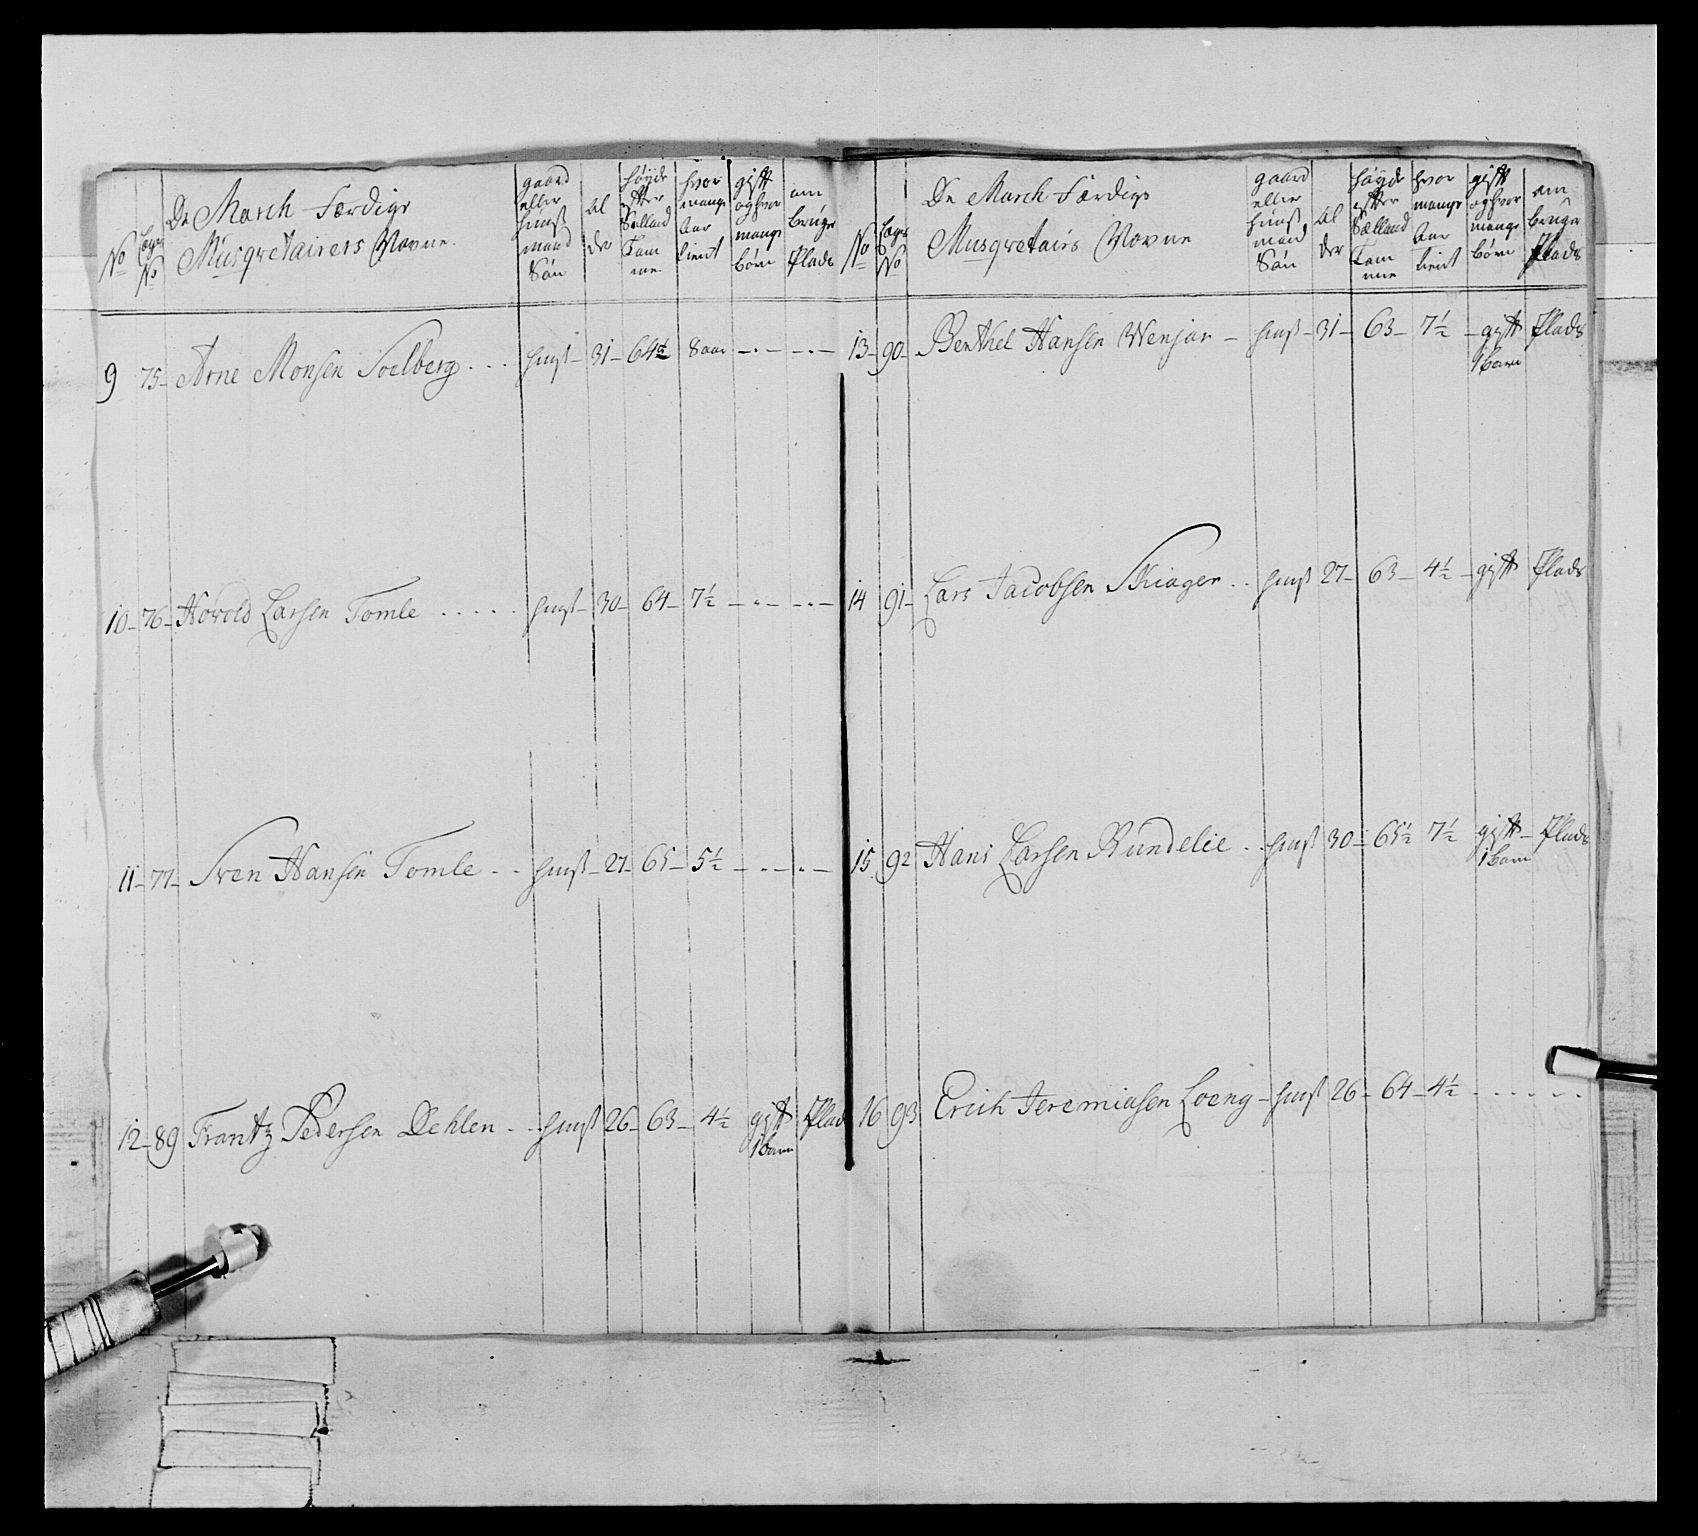 No
Legs No
De March Færdige
Musqvetairers Navne.
gaard eller huus mand Søn
Al der
høyde efter Sælland Tom me
hvor mange Aar tient
gift og hvor mange børn
om bruger Plads
9 75 Arne Monsen Soelberg . . . huus 31 64½ 8 aar
10 76 Horold Larsen Tomle . . . . . huus 30 64 7½
11 77 Sven Hansen Tomle . . huus 27 65 5½
12 89 Frantz Pedersen Dehlen . . huus 26 63 4½ gift Plads
1 barn
No
Legs No
De March Færdige
Musqvetairs Navne
gaard eller huus mand Søn
Al der
høyde efter Sælland Tom me
hvor mange Aar tient
gift og hvor mange børn
om bruger Plads
13 90 Benthel Hansen Wenjar huus 31 63 7½ gift Plads
1 barn
14 91 Lars Jacobsen Skiager . . huus 27 63 4½ gift Plads
15 92 Hans Larsen Rundelie . . huus 30 65½ 7½ gift Plads
1 barn
16 93 Erich Jeremiasen Loeng huus 26 64 4½ . . . . . .